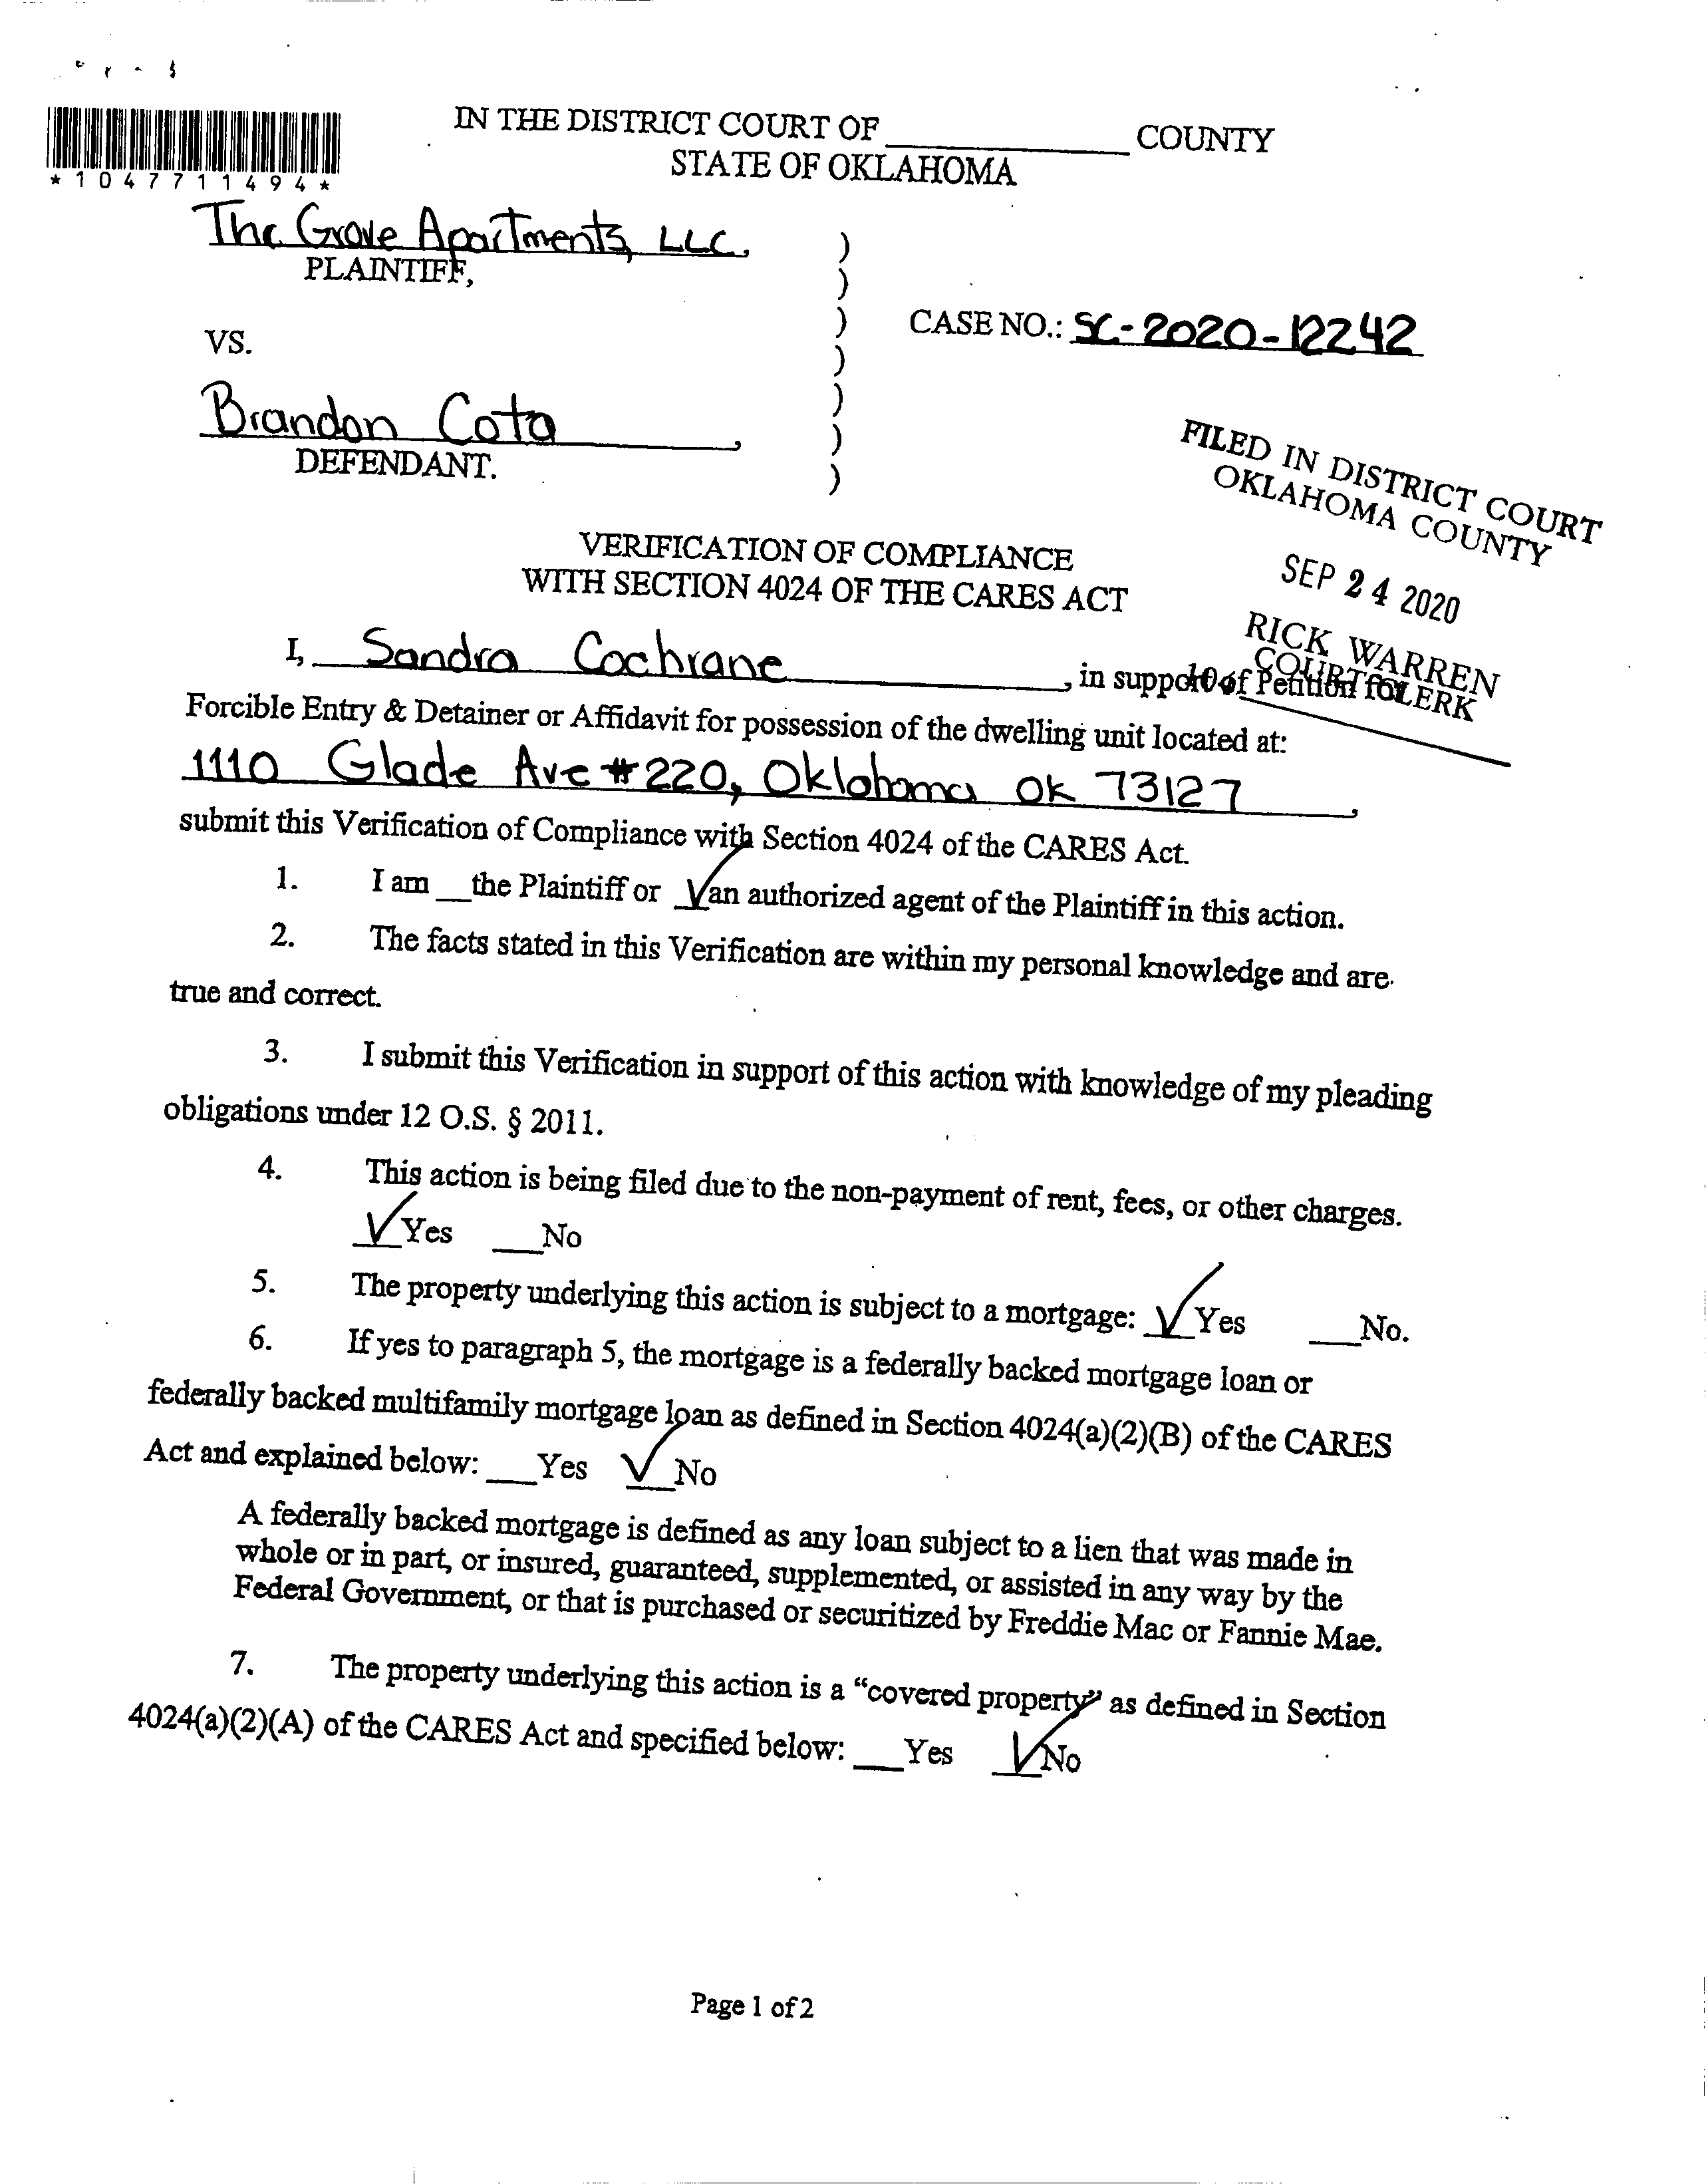 *1047711494*
IN THE DISTRICT COURT OF ____________ COUNTY
STATE OF OKLAHOMA
The Grove Apartments, LLC,
PLAINTIFF,
VS.
CASE NO.: SC-2020-12242
Brandon Cota,
DEFENDANT.
)
)
)
)
)
)
)
FILED IN DISTRICT COURT
OKLAHOMA COUNTY
SEP 24 2020
RICK WARREN
COURT CLERK
VERIFICATION OF COMPLIANCE
WITH SECTION 4024 OF THE CARES ACT
I, Sandra Cochrane, in support of Petition for
Forcible Entry & Detainer or Affidavit for possession of the dwelling unit located at:
1110 Glade Ave #220, Oklahoma OK 73127,
submit this Verification of Compliance with Section 4024 of the CARES Act.
1. I am __the Plaintiff or ✓an authorized agent of the Plaintiff in this action.
2. The facts stated in this Verification are within my personal knowledge and are
true and correct.
3. I submit this Verification in support of this action with knowledge of my pleading
obligations under 12 O.S. § 2011.
4. This action is being filed due to the non-payment of rent, fees, or other charges.
✓Yes ___No
5. The property underlying this action is subject to a mortgage: ✓Yes ___No.
6. If yes to paragraph 5, the mortgage is a federally backed mortgage loan or
federally backed multifamily mortgage loan as defined in Section 4024(a)(2)(B) of the CARES
Act and explained below: ___Yes ✓No
A federally backed mortgage is defined as any loan subject to a lien that was made in
whole or in part, or insured, guaranteed, supplemented, or assisted in any way by the
Federal Government, or that is purchased or securitized by Freddie Mac or Fannie Mae.
7. The property underlying this action is a “covered property” as defined in Section
4024(a)(2)(A) of the CARES Act and specified below: ___Yes ✓No
Page 1 of 2